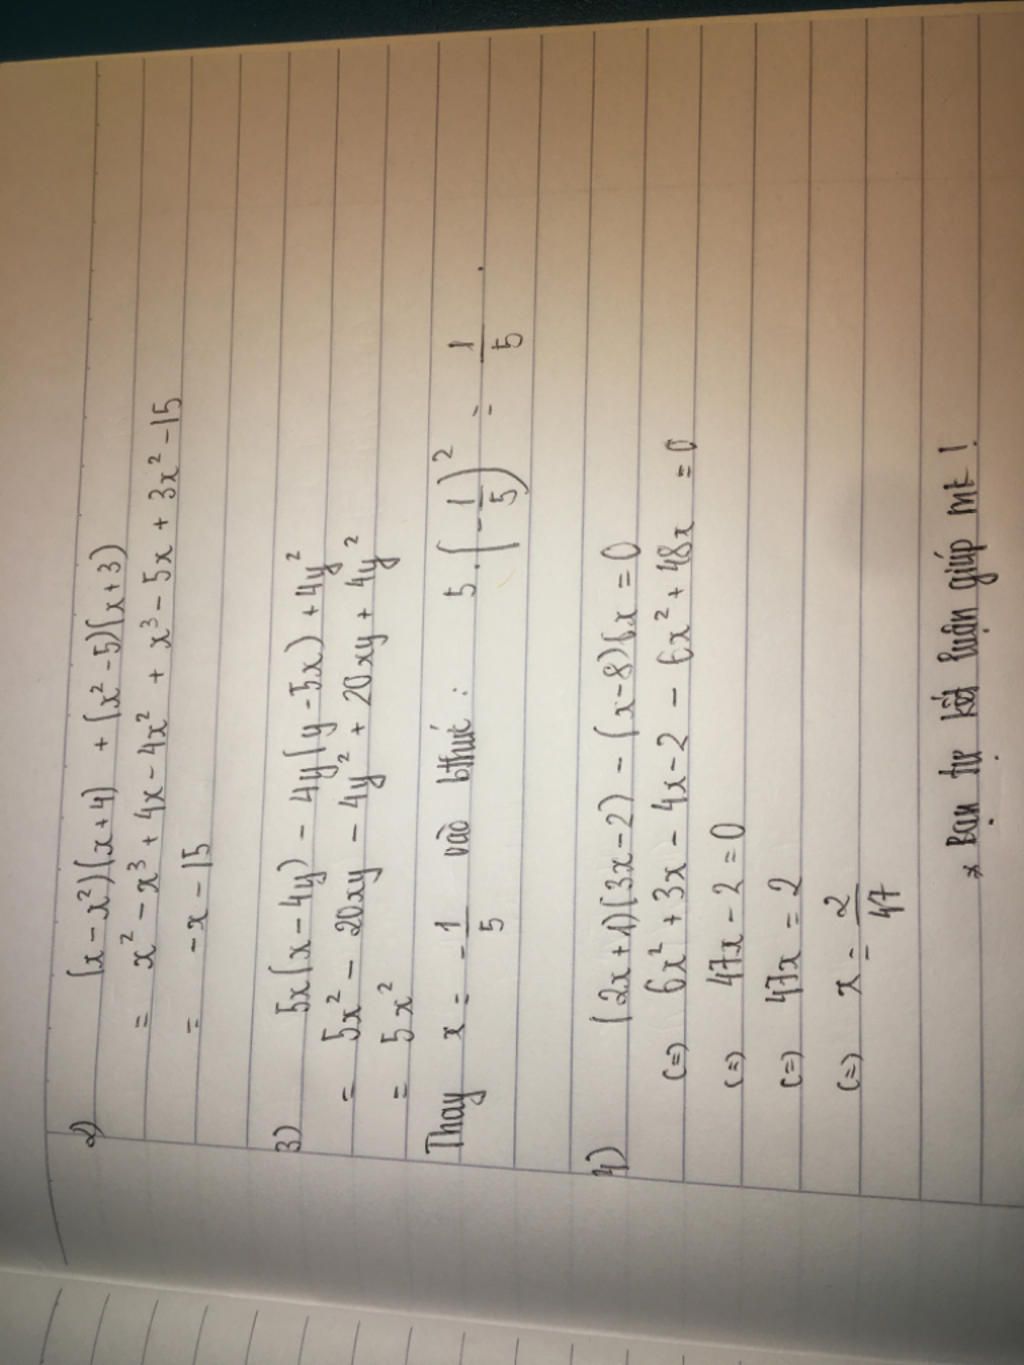 2) (x - x²)(x + 4) + (x² - 5)(x + 3)
= x² - x³ + 4x - 4x² + x³ - 5x + 3x² - 15
= -x - 15
3) 5x(x - 4y) - 4y(y - 5x) + 4y²
= 5x² - 20xy - 4y² + 20xy + 4y²
= 5x²
Thay x = -1/5 vào bthức : 5.(-1/5)² = 1/5 .
4) (2x + 1)(3x - 2) - (x - 8)6x = 0
(=) 6x² + 3x - 4x - 2 - 6x² + 48x = 0
(=) 47x - 2 = 0
(=) 47x = 2
(=) x = 2/47
* Bạn tự kết luận giúp mk !